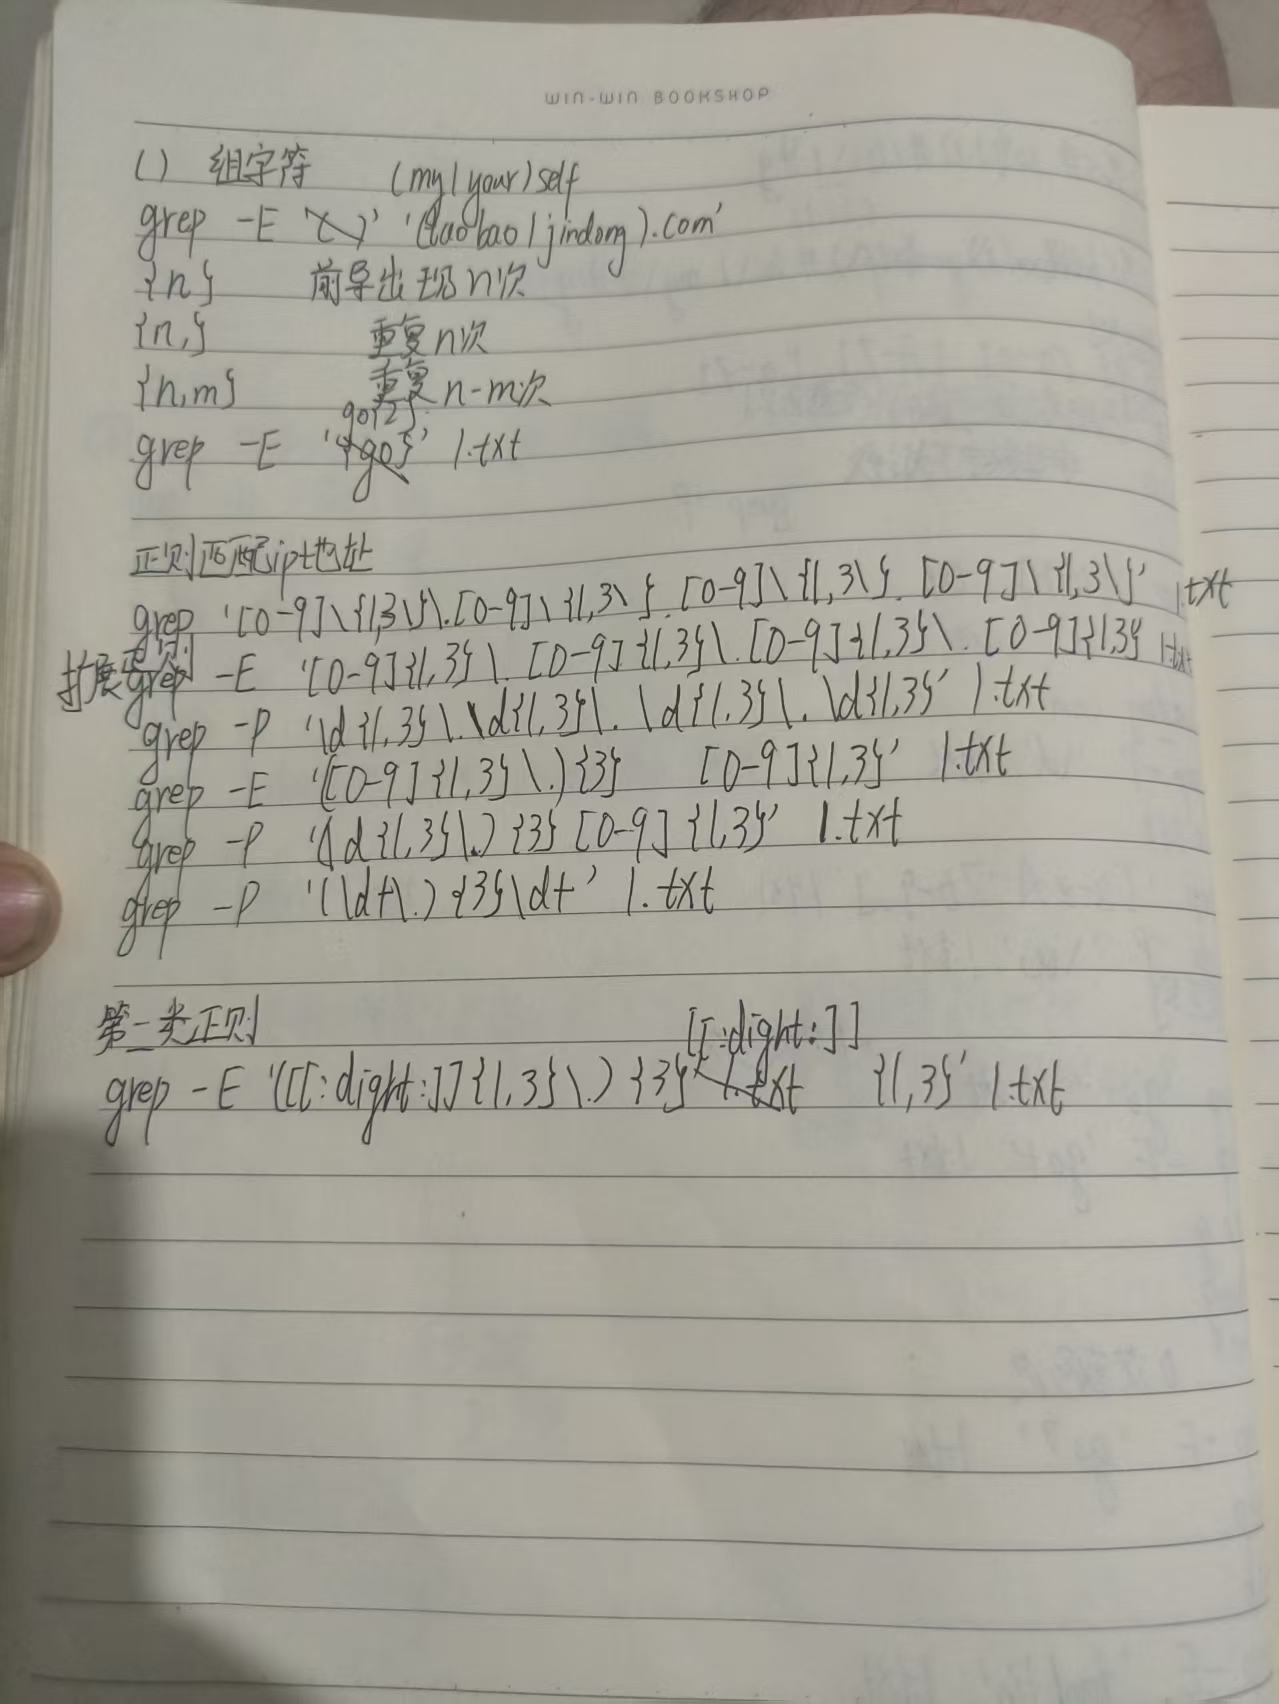 WIN-WIN BOOKSHOP
() 组字符 (my|your)self
grep -E '(taobao|jindong).com'
{n} 前导出现n次
{n,} 重复n次
{n,m} 重复n-m次
go{2}
grep -E '{go}' 1.txt
正则匹配ip地址
grep '[0-9]\{1,3\}\.[0-9]\{1,3\}.[0-9]\{1,3\}.[0-9]\{1,3\}' 1.txt
扩展正则
grep -E '[0-9]{1,3}\.[0-9]{1,3}\.[0-9]{1,3}\.[0-9]{1,3} 1.txt
grep -P '\d{1,3}\.\d{1,3}\.\d{1,3}\.\d{1,3}' 1.txt
grep -E '([0-9]{1,3}\.){3} [0-9]{1,3}' 1.txt
grep -P '(\d{1,3}\.){3}[0-9]{1,3}' 1.txt
grep -P '(\d+\.){3}\d+' 1.txt
第二类正则
[[:dight:]]
grep -E '([[:dight:]]{1,3}\.){3}' 1.txt {1,3}' 1.txt